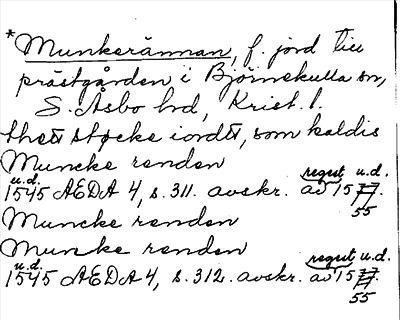 *Munkerännan, f. jord till
prästgården i Björnekulla sn,
S. Åsbo hd, Krist. l.
thett støcke iordtt, som kaldis
Muncke renden
u.d. regest u.d.
1545 AEDA 4, s. 311. avskr. av 1577.
55
Muncke renden
Muncke renden
u.d. regest u.d.
1545 AEDA 4, s. 312. avskr. av 1577.
55